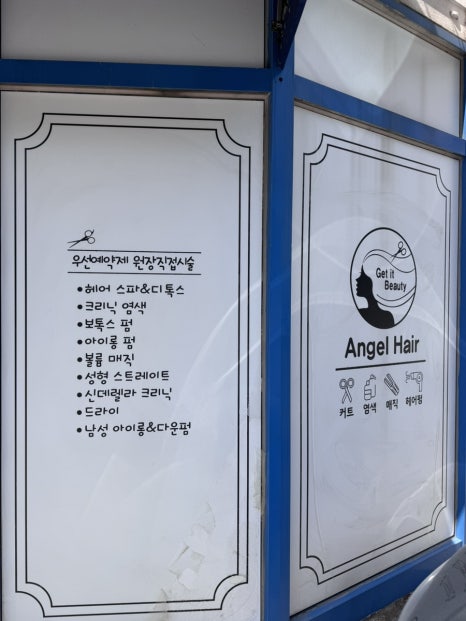 우선예약제 원장직접시술
•헤어 스파&디톡스
•크리닉 염색
•보톡스 펌
•아이롱 펌
•볼륨 매직
•성형 스트레이트
•신데렐라 크리닉
•드라이
•남성 아이롱&다운펌
Get it
Beauty
Angel Hair
커트 염색 매직 헤어펌